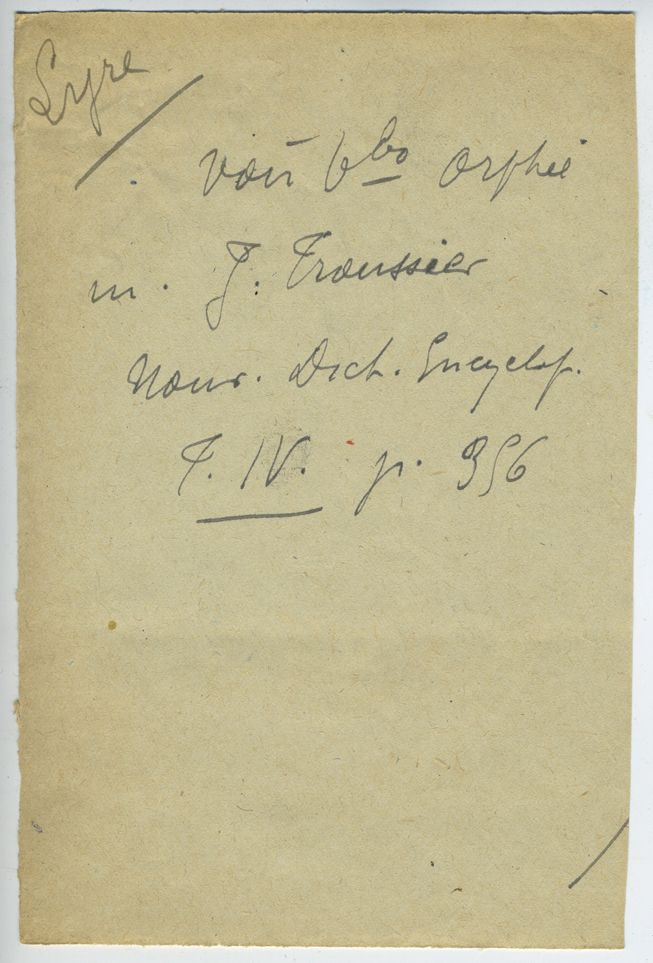 Lyre
voir Vbo Orphée
in. J. Troussier
Nouv. Dict. Encyclop.
T. IV. p. 356